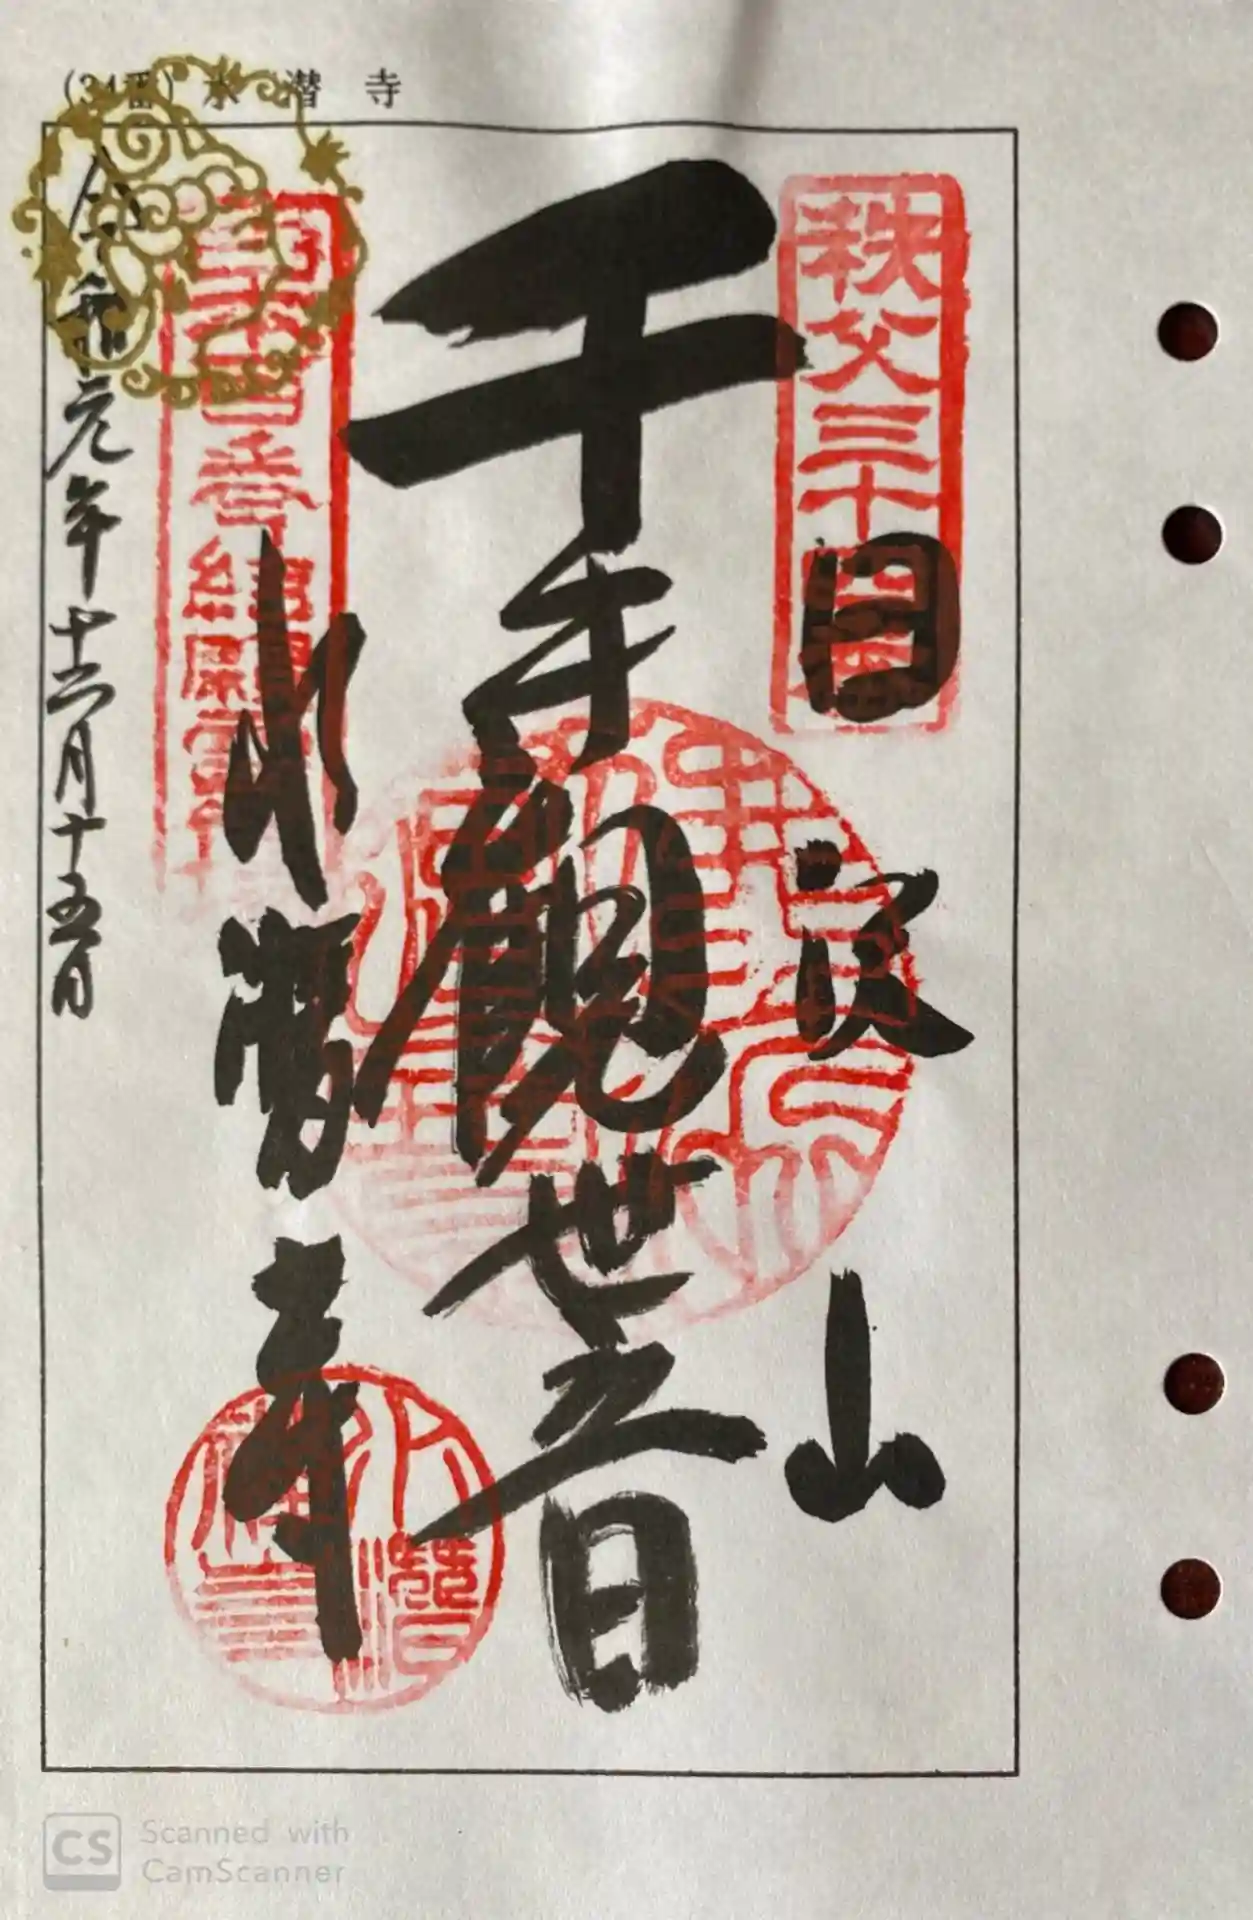 (34番) 水潜寺
秩父三十四番
日沢山
千手観世音
水潜寺
日本百番結願寺
令和元年十二月十五日
CS Scanned with
CamScanner